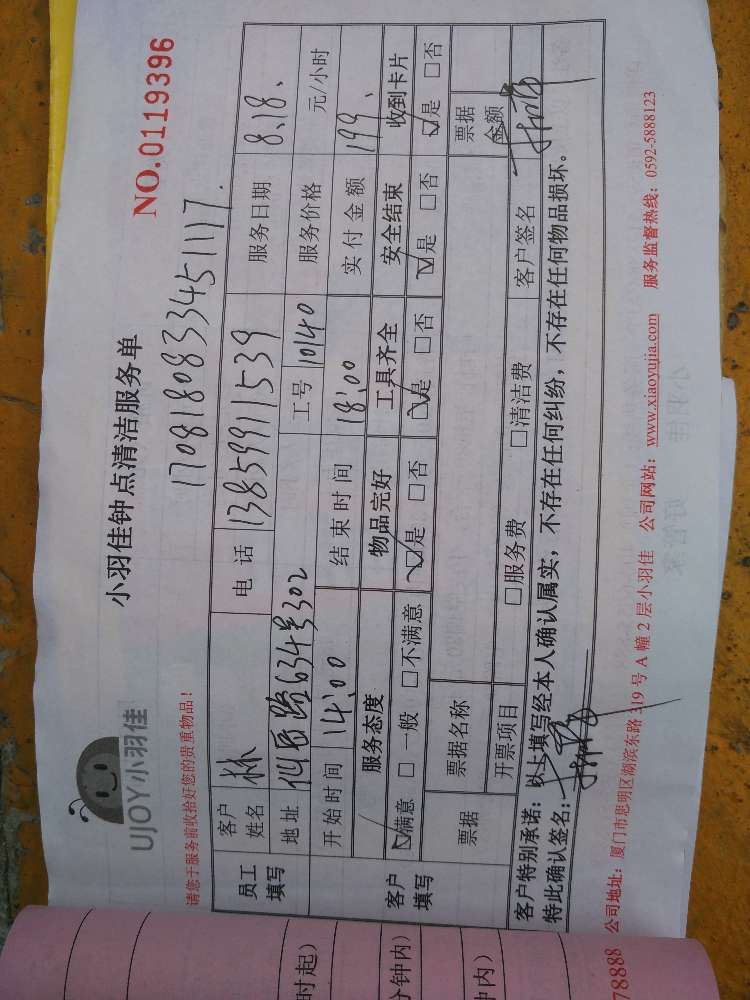 UJOY小羽佳
小羽佳钟点清洁服务单
NO.0119396
请您于服务前收拾好您的贵重物品!
17081808334511117.
员工填写 客户姓名 林 电话 13859911539 服务日期 8、18、
地址 路634号302 工号 10140 服务价格 元/小时
客户填写 开始时间 14:00 结束时间 18:00 实付金额 199、
服务态度 物品完好 工具齐全 安全结束 收到卡片
☑满意 □一般 □不满意 ☑是 □否 ☑是 □否 ☑是 □否 ☑是 □否
票据 票据名称 票据金额
开票项目 □服务费 □清洁费 客户签名
客户特别承诺:以上填写经本人确认属实,不存在任何纠纷,不存在任何物品损坏。
特此确认签名:
78888 公司地址:厦门市思明区湖滨东路319号A幢2层小羽佳 公司网站:www.xiaoyujia.com 服务监督热线:0592-5888123
时起)
分钟内)
钟内)